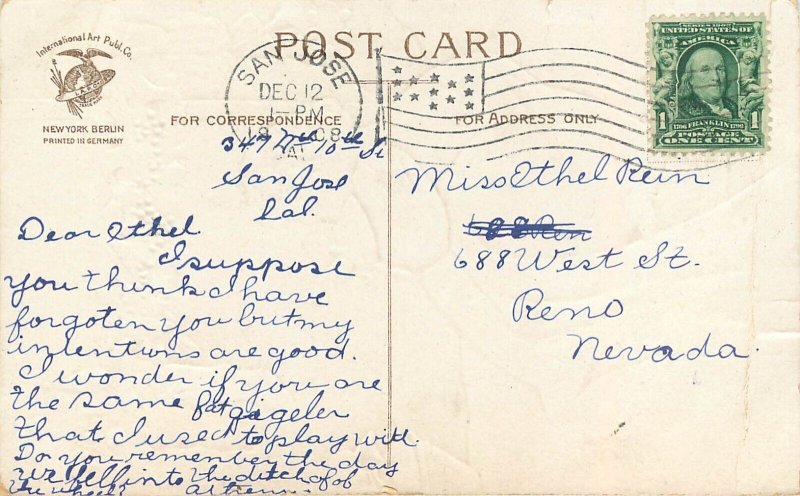 International Art Publ. Co.
NEW YORK BERLIN
PRINTED IN GERMANY
POST CARD
FOR CORRESPONDENCE
FOR ADDRESS ONLY
SAN JOSE
DEC 12
1- PM
1908
CAL
SERIES 1902
UNITED STATES OF
AMERICA
1 1
1706 FRANKLIN 1790
POSTAGE
ONE CENT
347 10th St
San Jose
Cal.
Dear Ethel
I suppose
you think I have
forgoten you but my
intentions are good.
I wonder if you are
the same fat gigeler
that I used to play with.
Do you remember the day
we fell into the ditch of ob
the wheel
Miss Ethel Rein
688 West St.
Reno
Nevada.